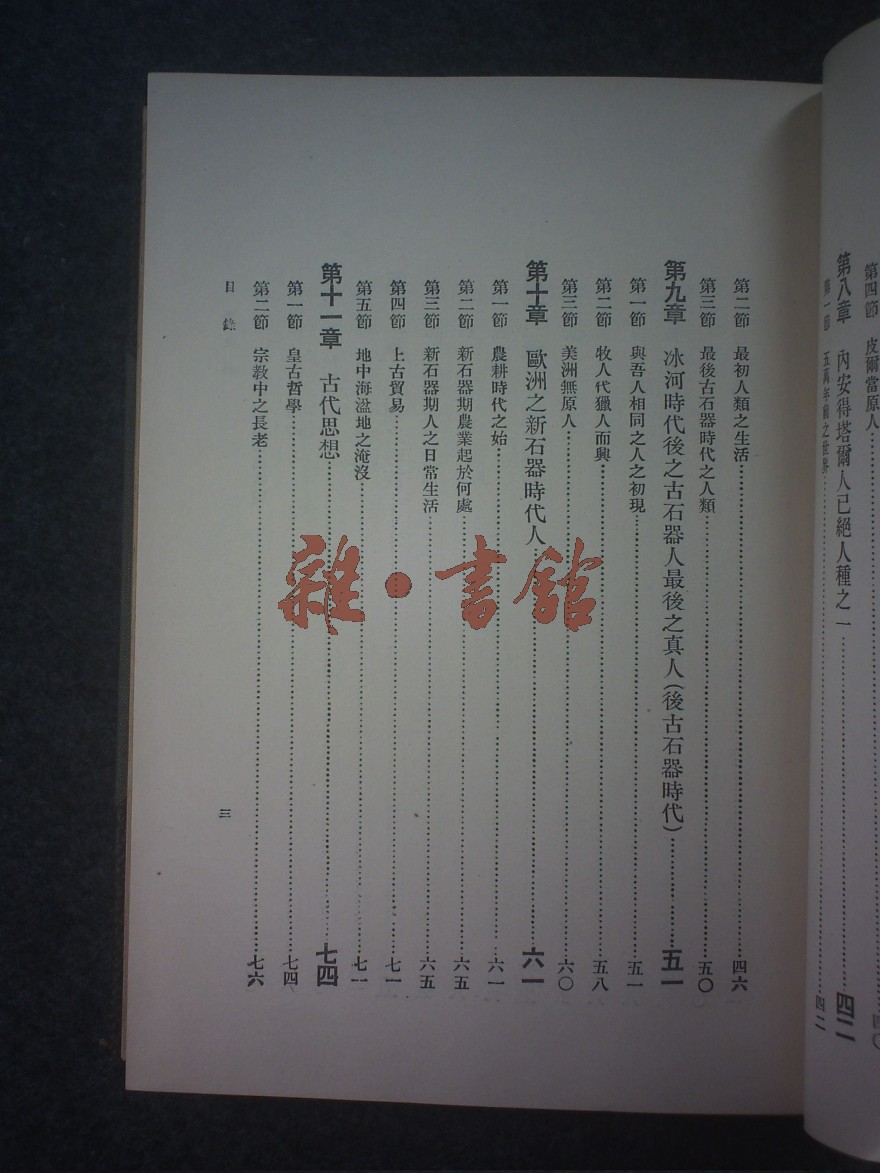 第四節 皮爾當原人 四〇
第八章 內安得塔爾人已絕人種之一 四二
第一節 五萬年前之世界 四二
第二節 最初人類之生活 四六
第三節 最後古石器時代之人類 五〇
第九章 冰河時代後之古石器人最後之真人(後古石器時代) 五一
第一節 與吾人相同之人之初現 五一
第二節 牧人代獵人而興 五八
第三節 美洲無原人 六〇
第十章 歐洲之新石器時代人 六一
第一節 農耕時代之始 六一
第二節 新石器期農業起於何處 六五
第三節 新石器期人之日常生活 六五
第四節 上古貿易 七一
第五節 地中海盆地之淹沒 七一
第十一章 古代思想 七四
第一節 皇古哲學 七四
第二節 宗教中之長老 七六
目錄 三
雜·書館